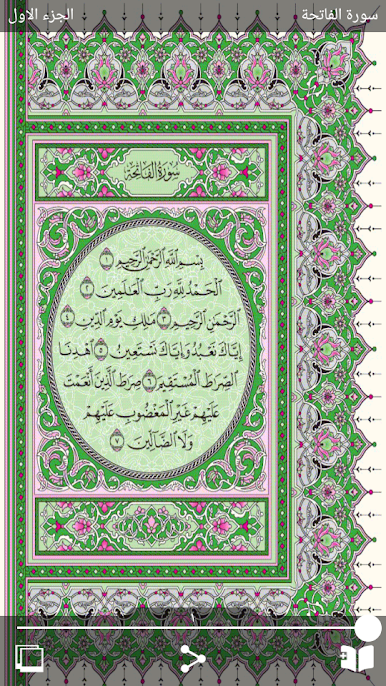 سورة الفاتحة الجزء الاول
سُورَةُ الفَاتِحَةِ
بِسْمِ اللَّهِ الرَّحْمَٰنِ الرَّحِيمِ ١
الْحَمْدُ لِلَّهِ رَبِّ الْعَالَمِينَ ٢
الرَّحْمَٰنِ الرَّحِيمِ ٣ مَالِكِ يَوْمِ الدِّينِ ٤
إِيَّاكَ نَعْبُدُ وَإِيَّاكَ نَسْتَعِينُ ٥ اهْدِنَا
الصِّرَاطَ الْمُسْتَقِيمَ ٦ صِرَاطَ الَّذِينَ أَنْعَمْتَ
عَلَيْهِمْ غَيْرِ الْمَغْضُوبِ عَلَيْهِمْ
وَلَا الضَّالِّينَ ٧
١